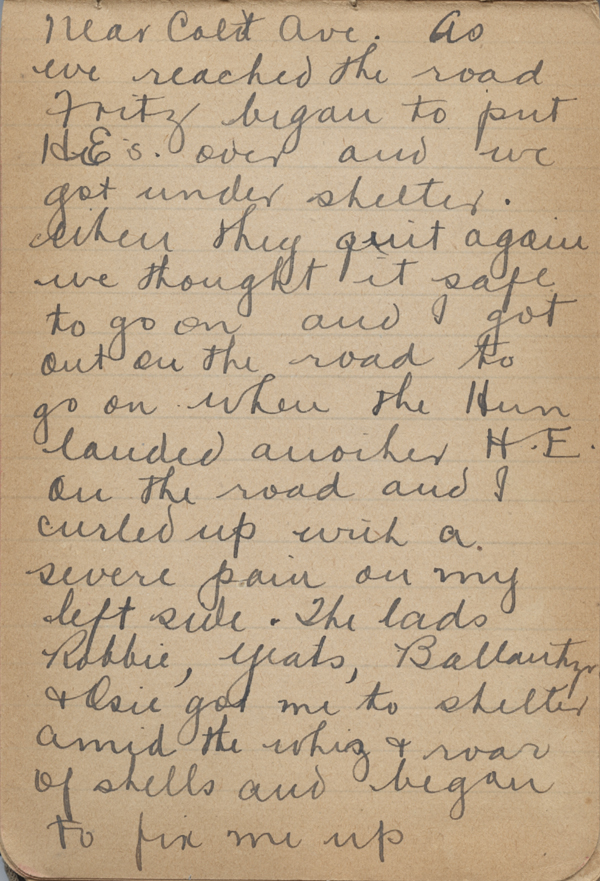 Near Colt Ave. As
we reached the road
Fritz began to put
H.E's. over and we
got under shelter.
when they quit again
we thought it safe
to go on and I got
out on the road to
go on when the Hun
landed another H.E.
on the road and I
curled up with a
severe pain on my
left side. The lads
Robbie, Yeats,
& Osie got me to shelter
amid the whiz & roar
of shells and began
to fix me up